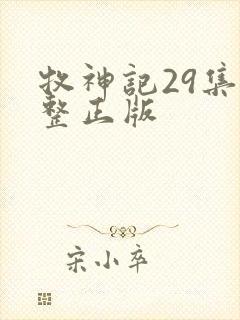 牧神記29集
整正版
宋小卒